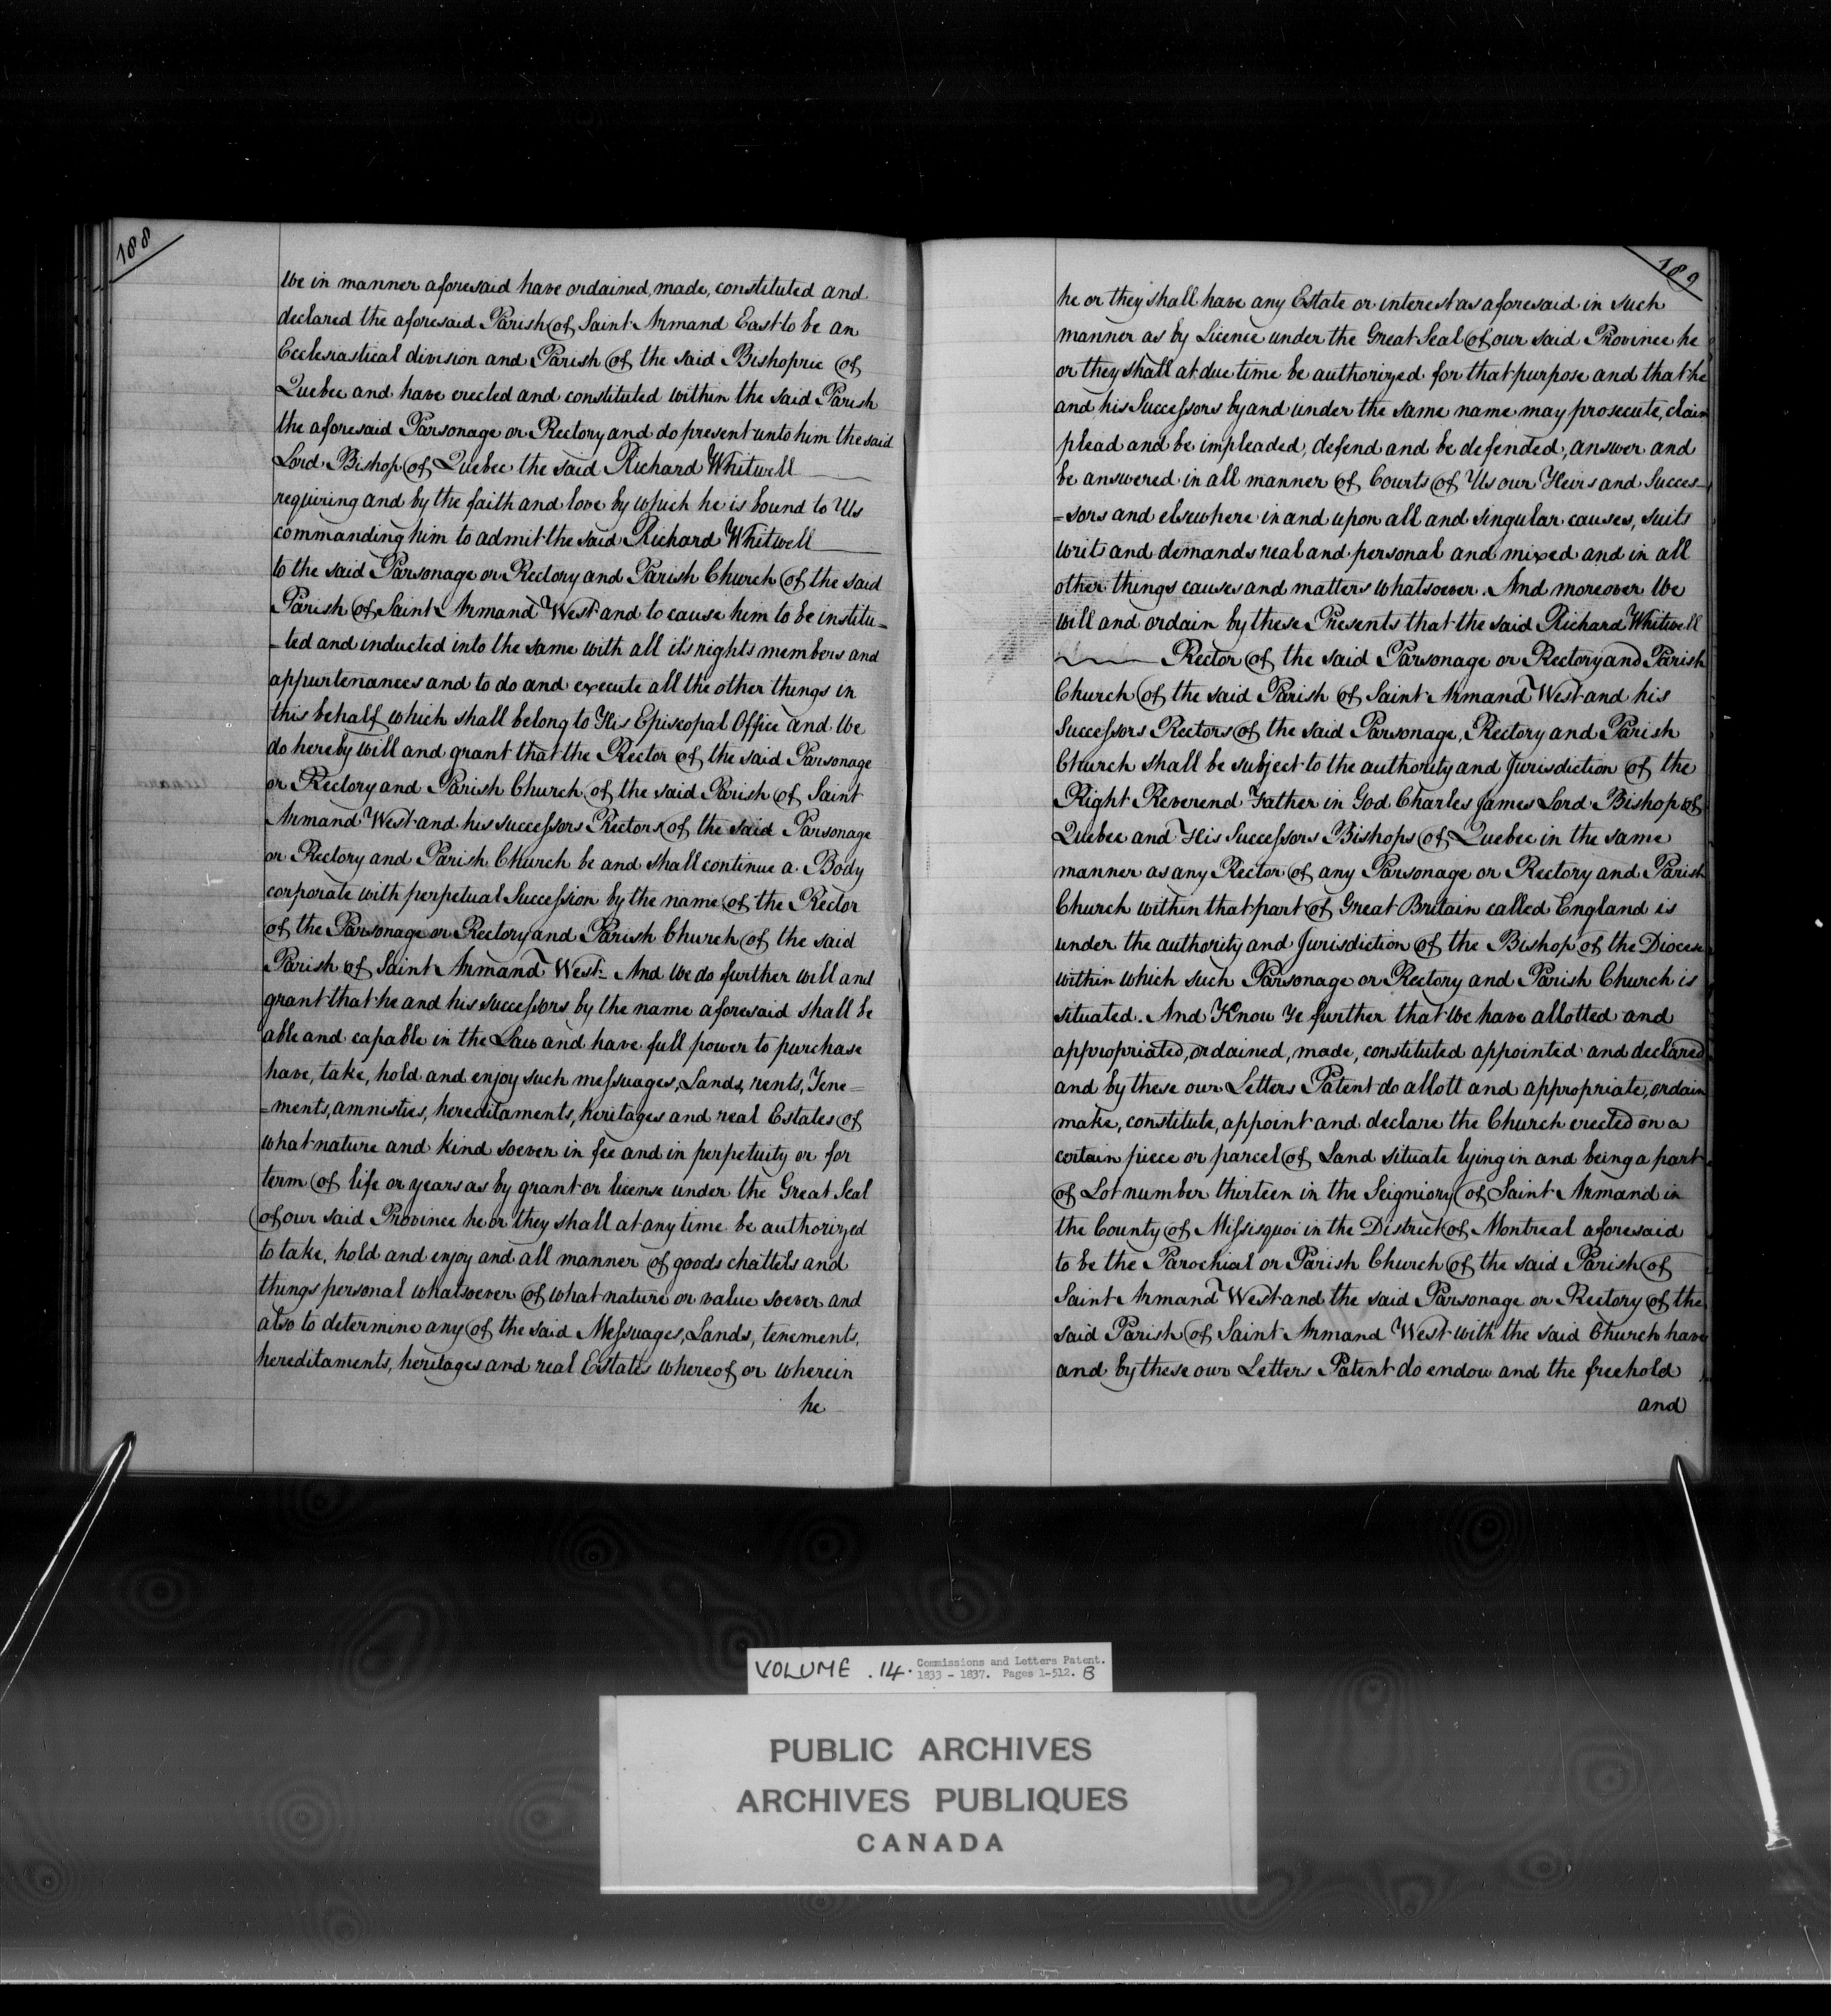 188
We in manner aforesaid have ordained, made, constituted and
declared the aforesaid Parish of Saint Armand East to be an
Ecclesiastical division and Parish of the said Bishopric of
Quebec and have erected and constituted within the said Parish
the aforesaid Parsonage or Rectory and do present unto him the said
Lord Bishop of Quebec the said Richard Whitwell
requiring and by the faith and love by which he is bound to Us
commanding him to admit the said Richard Whitwell
to the said Parsonage or Rectory and Parish Church of the said
Parish of Saint Armand West and to cause him to be institu=
=ted and inducted into the same with all it's rights members and
appurtenances and to do and execute all the other things in
this behalf which shall belong to His Episcopal Office and We
do hereby will and grant that the Rector of the said Parsonage
or Rectory and Parish Church of the said Parish of Saint
Armand West and his successors Rectors of the said Parsonage
or Rectory and Parish Church be and shall continue a Body
corporate with perpetual Succession by the name of the Rector
of the Parsonage or Rectory and Parish Church of the said
Parish of Saint Armand West. And We do further will and
grant that he and his successors by the name aforesaid shall be
able and capable in the Law and have full power to purchase
have, take, hold and enjoy such messuages, Lands, rents, Tene=
=ments, amnisties, hereditaments, heritages and real Estates of
what nature and kind soever in fee and in perpetuity or for
term of life or years as by grant or license under the Great Seal
of our said Province he or they shall at any time be authorized
to take, hold and enjoy and all manner of goods chattels and
things personal whatsoever of what nature or value soever and
also to determine any of the said Messuages, Lands, tenements,
hereditaments, heritages and real Estates whereof or wherein
he
189
he or they shall have any Estate or interest as aforesaid in such
manner as by Licence under the Great Seal of our said Province he
or they shall at due time be authorized for that purpose and that he
and his Successors by and under the same name may prosecute, claim
plead and be impleaded, defend and be defended, answer and
be answered in all manner of Courts of Us our Heirs and Succes-
=sors and elsewhere in and upon all and singular causes, suits
writs and demands real and personal and mixed and in all
other things causes and matters whatsoever. And moreover We
will and ordain by these Presents that the said Richard Whitwell
Rector of the said Parsonage or Rectory and Parish
Church of the said Parish of Saint Armand West and his
Successors Rectors of the said Parsonage, Rectory and Parish
Church shall be subject to the authority and Jurisdiction of the
Right Reverend Father in God Charles James Lord Bishop of
Quebec and His Successors Bishops of Quebec in the same
manner as any Rector of any Parsonage or Rectory and Parish
Church within that part of Great Britain called England is
under the authority and Jurisdiction of the Bishop of the Diocese
within which such Parsonage or Rectory and Parish Church is
situated. And Know Ye further that We have allotted and
appropriated, ordained, made, constituted appointed and declared
and by these our Letters Patent do allott and appropriate, ordain
make, constitute, appoint and declare the Church erected on a
certain piece or parcel of Land situate lying in and being a part
of Lot number thirteen in the Seigniory of Saint Armand in
the County of Missisquoi in the District of Montreal aforesaid
to be the Parochial or Parish Church of the said Parish of
Saint Armand West and the said Parsonage or Rectory of the
said Parish of Saint Armand West with the said Church have
and by these our Letters Patent do endow and the freehold
and
VOLUME . 14. Commissions and Letters Patent.
1833 - 1837. Pages 1-512. B
PUBLIC ARCHIVES
ARCHIVES PUBLIQUES
CANADA